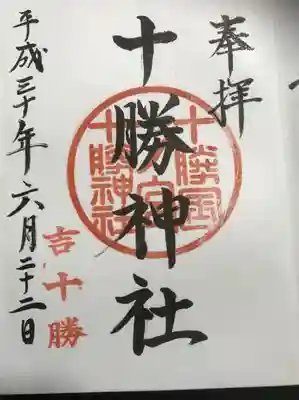 奉拝
十勝神社
十勝国
十勝神社
平成三十年六月二十二日
吉十勝